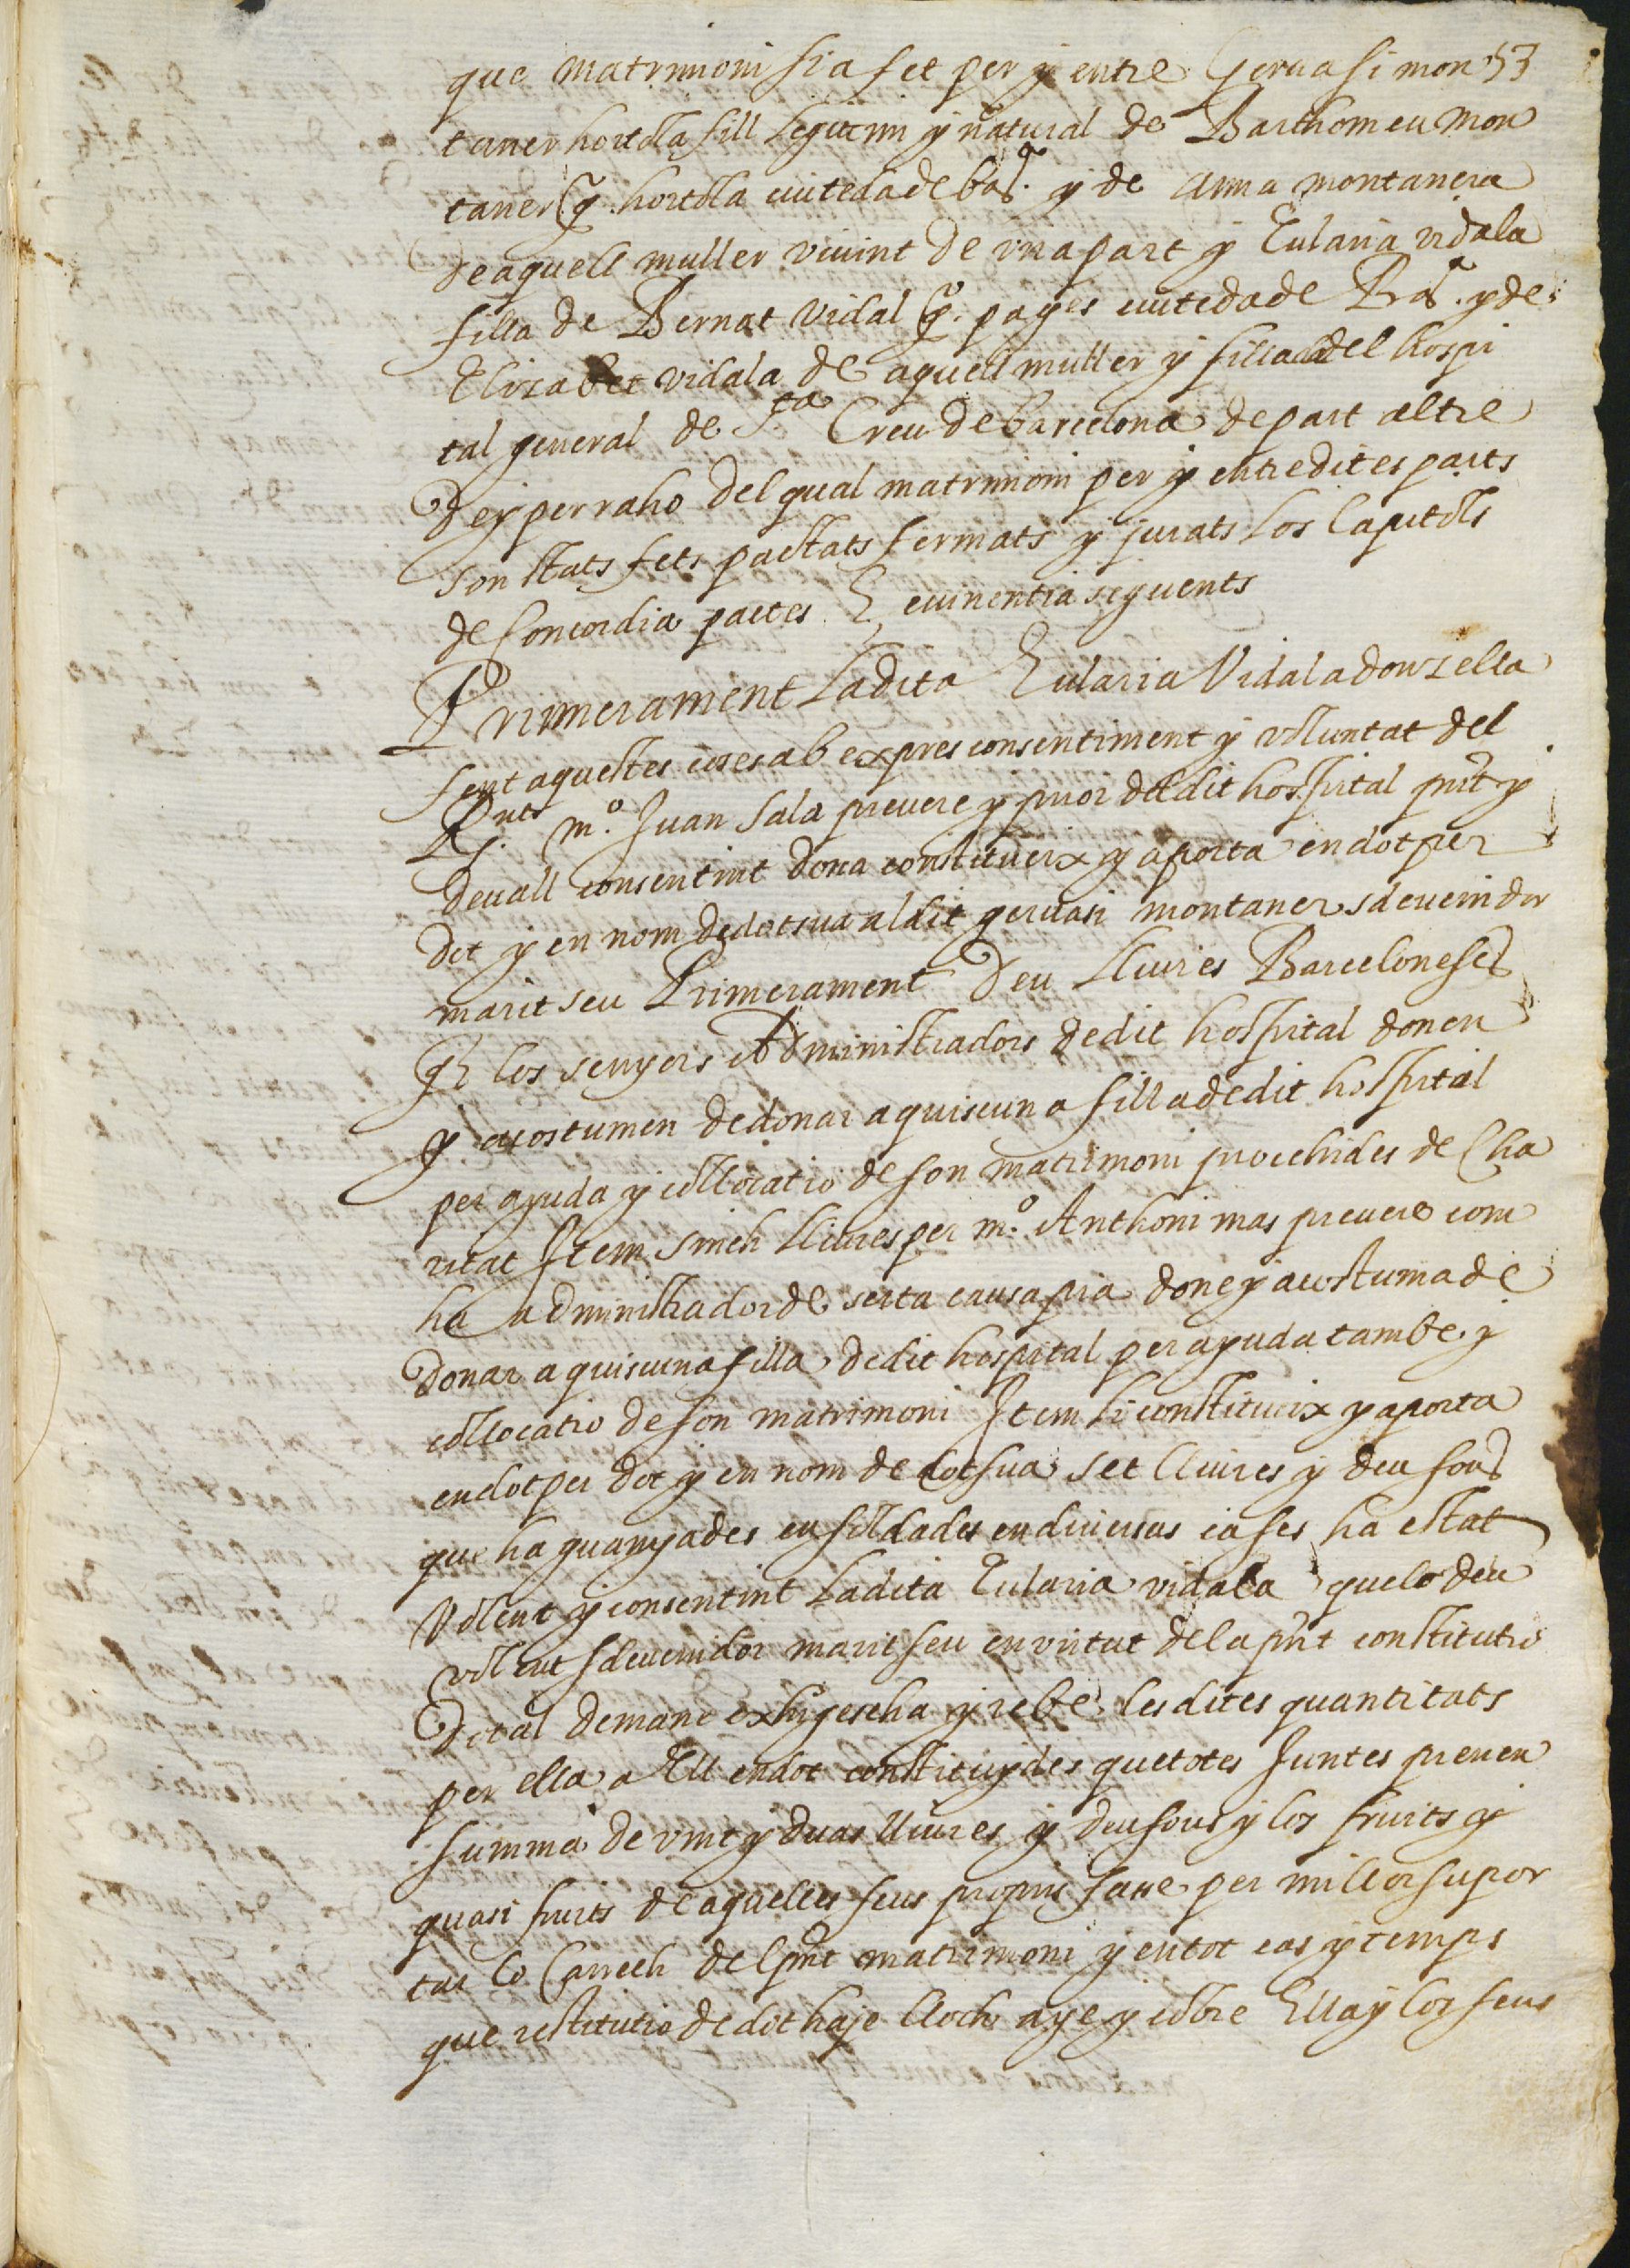 que matrimoni sia fet per y entre Geruasi mon 53
taner hortola fill legitim y natural de Barthomeu mon
taner q̊. hortola ciutedadebar.ª y de Anna montanera
de aquell muller viuint de vna part y Eularia vidala
filla de Bernat Vidal q̊. pages ciutedade Bar.ª y de
Elizabet vidala de aquell muller y filla del hospi
tal general de S.ta Creu de barcelona de part altre
De y per raho del qual matrimoni per y entre dites parts
son stats fets pactats fermats y jurats los Capitols
de Concordia pactes E auinentia seguents
Primerament Ladita Eularia Vidala donzella
fent aquestes coses ab expres consentiment y voluntat del
R.nt m.º Juan Sala preuere y prior deldit hospital pñt y
deuall consentint dona constitueix y aporta en dot per
dot y en nom de dot sua aldit geruasi montaner sdeuenidor
marit seu Primerament Deu Lliures Barceloneses
q̃ los senyors Administradors dedit hospital donen
y acostumen dedonar a quiscuna filla dedit hospital
per ajuda y collocatio de son matrimoni procehides de Cha
ritat Item sinch lliures per m.º Anthoni mas preuere com
ha administrador de serta causa pia done y acostuma de
Donar a quiscuna filla dedit hospital per ajuda tambe y
collocatio de son matrimoni Item li constitueix y aporta
en dot per dot y en nom de dot sua set lliures y deu sous
que ha guanyades en soldades en diuersas cases ha estat
Volent y consentint Ladita Eularia vidala que lo deu
volent sdeuenidor marit seu en virtut dela pñt constitutio
Dotal demane exhigescha y rebe les dites quantitats
per ella a Ell endot constituydes que totes Juntes prenen
summa de vint y duas lliures y deu sous y los fruits y
quasi fruits de aquelles seus propris fasse per millor supor
tar lo Carrech del pñt matrimoni y en tot cas y temps
que restitutio de dot haje lloch aje y cobre Ella y los seus